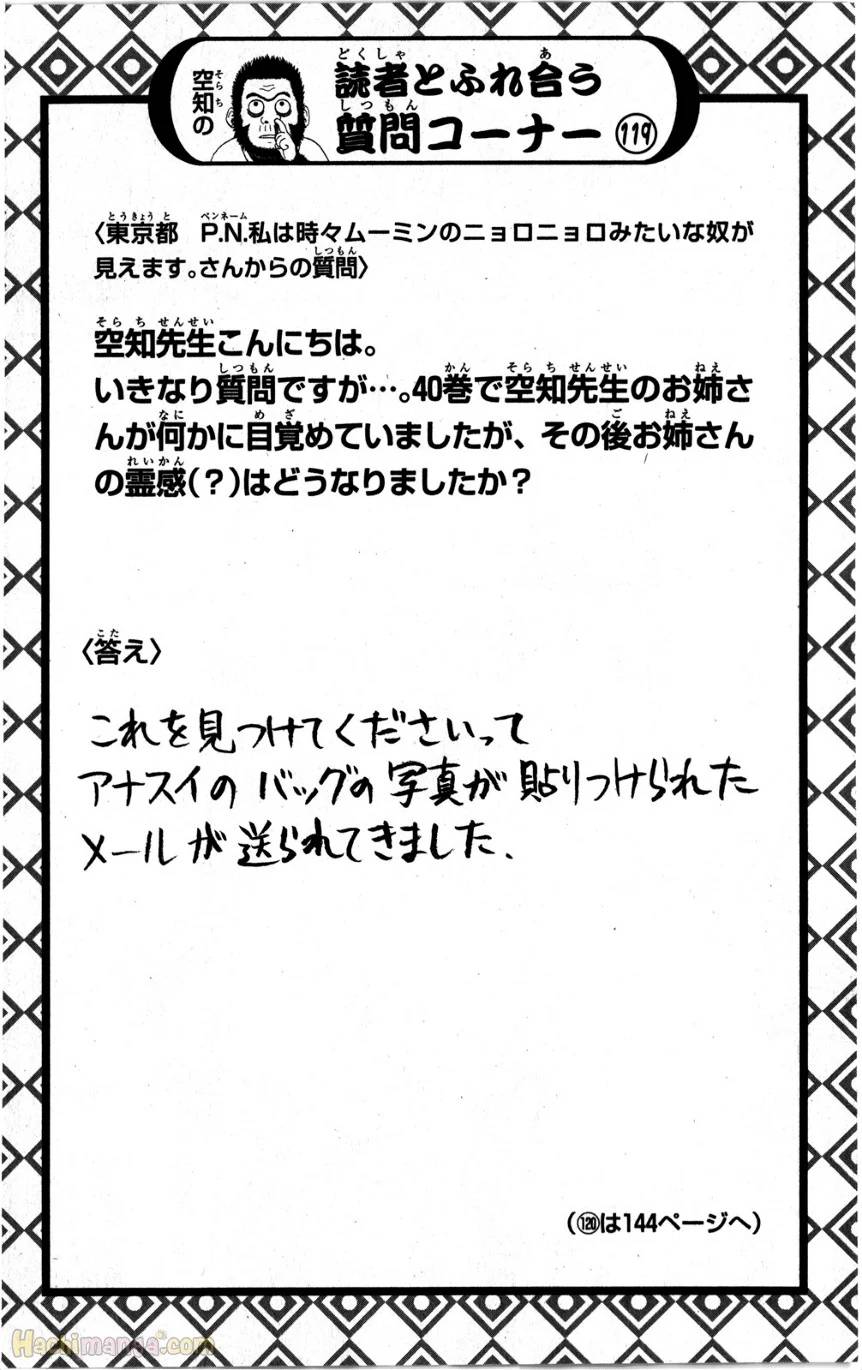 空知の
読者とふれ合う
質問コーナー119
〈東京都　P.N.私は時々ムーミンのニョロニョロみたいな奴が
見えます。さんからの質問〉
空知先生こんにちは。
いきなり質問ですが…。40巻で空知先生のお姉さ
んが何かに目覚めていましたが、その後お姉さん
の霊感(？)はどうなりましたか？
〈答え〉
これを見つけてくださいって
アナスイのバッグの写真が貼りつけられた
メールが送られてきました.
(120は144ページへ)
Hachimanga.com